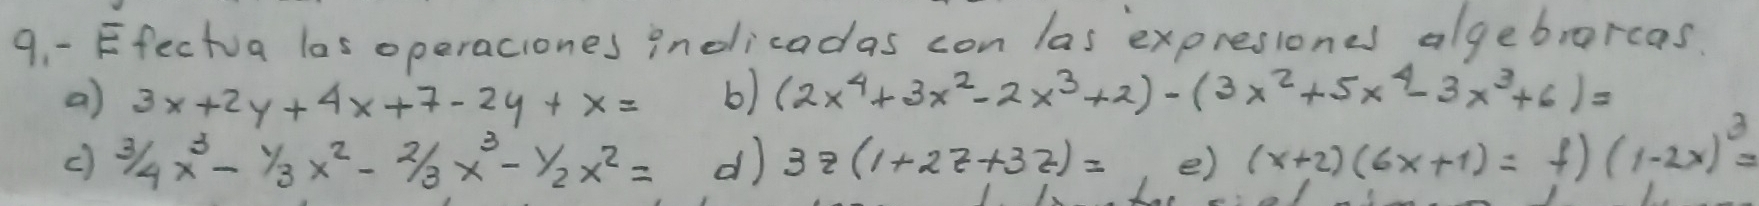 9.- Efectua las operaciones indicadas con las expresiones algebraicas.
a) 3x+2y+4x+7-2y+x= b) (2x⁴+3x²-2x³+2)-(3x²+5x⁴-3x³+6)=
c) 3/4x³-1/3x²-2/3x³-1/2x²= d) 3z(1+2z+3z)= e) (x+2)(6x+1)= f) (1-2x)³=